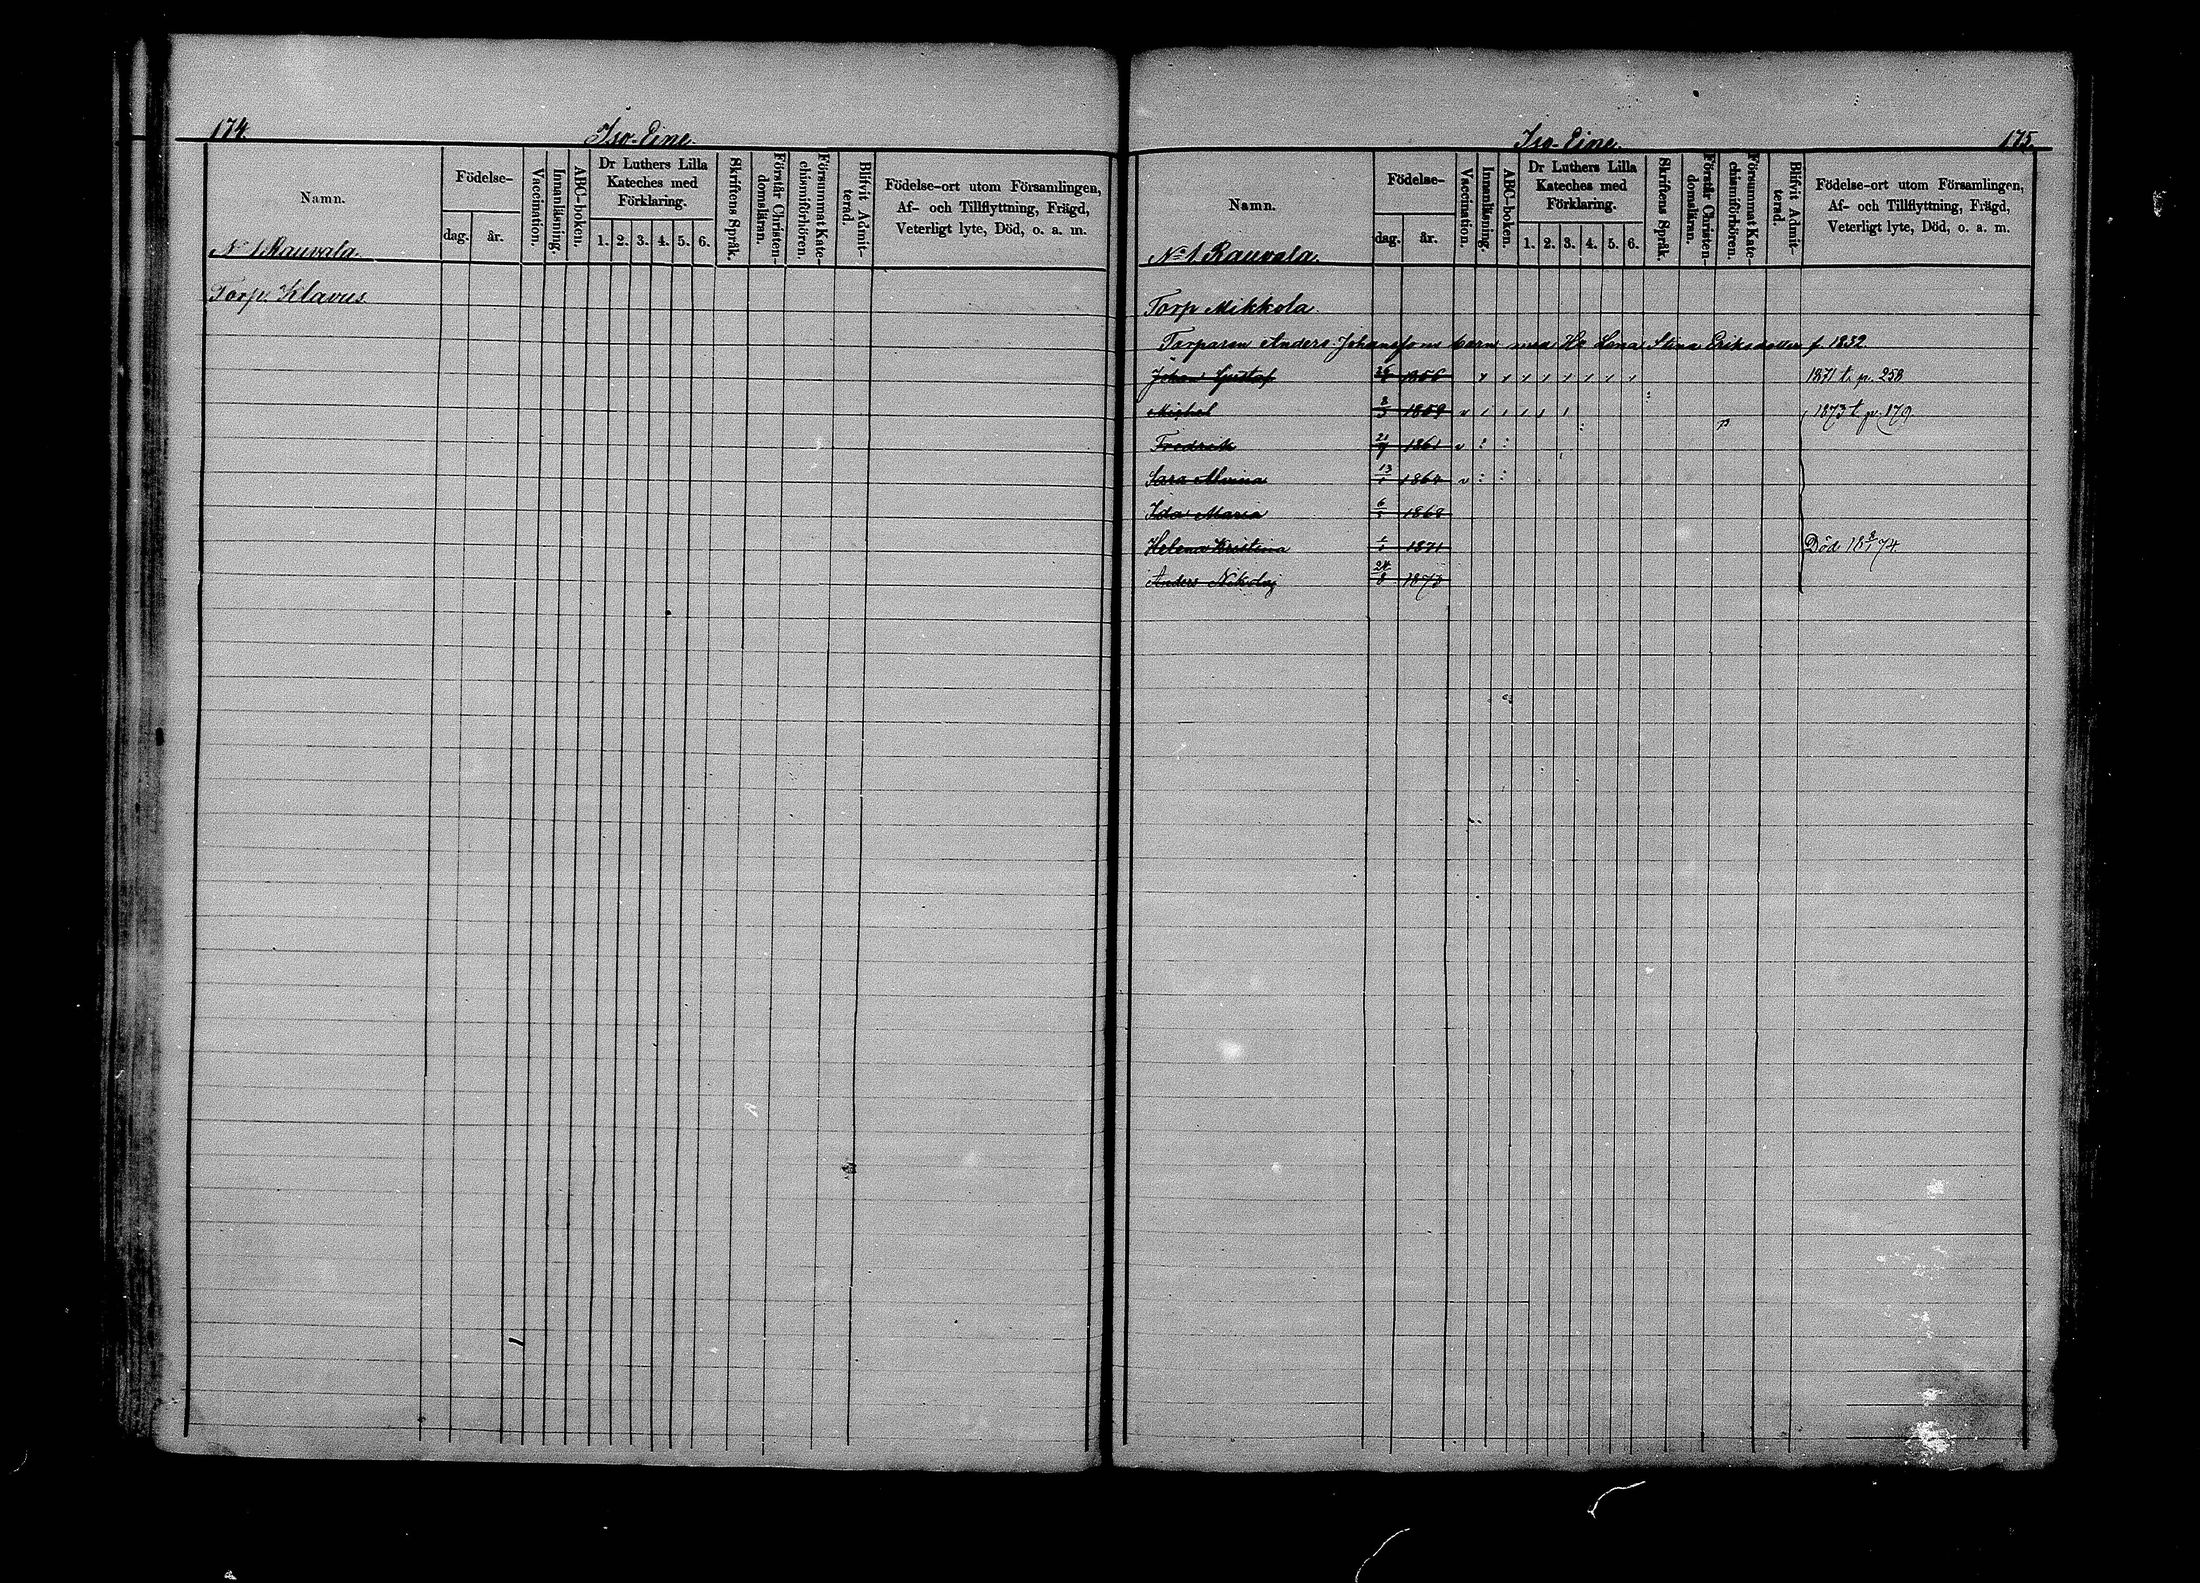 174.
Iso-Eine.
Namn.
Födelse-
dag. år.
Vaccination.
Innanläsning.
ABC-boken.
Dr Luthers Lilla
Kateches med
Förklaring.
1. 2. 3. 4. 5. 6.
Skriftens Språk.
Förstår Christen-
domsläran.
Försummat Kate-
chismiförhören.
Blifvit Admit-
terad.
Födelse-ort utom Församlingen,
Af- och Tillflyttning, Frägd,
Veterligt lyte, Död, o. a. m.
No 1 Rauvala.
Torp Klavus
Iso-Eine.
175.
Namn.
Födelse-
dag. år.
Vaccination.
Innanläsning.
ABC-boken.
Dr Luthers Lilla
Kateches med
Förklaring.
1. 2. 3. 4. 5. 6.
Skriftens Språk.
Förstår Christen-
domsläran.
Försummat Kate-
chismiförhören.
Blifvit Admit-
terad.
Födelse-ort utom Församlingen,
Af- och Tillflyttning, Frägd,
Veterligt lyte, Död, o. a. m.
No 1 Rauvala.
Torp Mikkola.
Torparen Anders Johanssons barn med Hu Lena Stina Eriksdotter f. 1832.
Johan Gustaf 1856 1871 t. p. 258
Michel 1859 1873 t. p. 179.
Fredrik 1861
Sara Alvina 13/1 1864
Ida Maria 1868
Helena Kristina 1871 Död 18 8/1 74.
Anders Nikolaj 24/8 1873